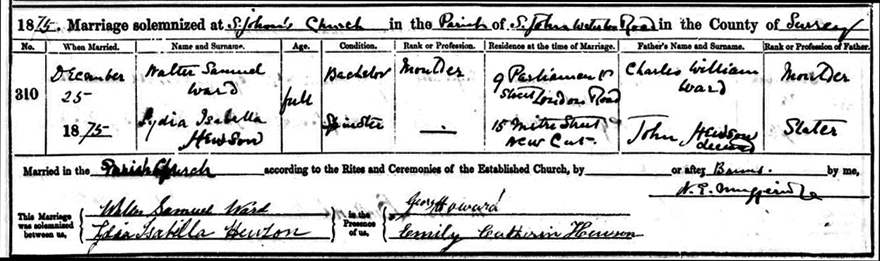 1875. Marriage solemnized at St. John's Church in the Parish of St. John Waterloo Road in the County of Surrey
No. When Married. Name and Surname. Age. Condition. Rank or Profession. Residence at the time of Marriage. Father's Name and Surname. Rank or Profession of Father.
310 December 25 1875 Walter Samuel Ward full Bachelor Moulder 9 Parliament Street London Road Charles William Ward Moulder
Lydia Isabella Hewson Spinster — 15 Mitre Street New Cut John Hewson deceased Slater
Married in the Parish Church according to the Rites and Ceremonies of the Established Church, by or after Banns. by me,
This Marriage was solemnized between us, Walter Samuel Ward in the Presence of us, George Howard
Lydia Isabella Hewson Emily Catherin Hewson